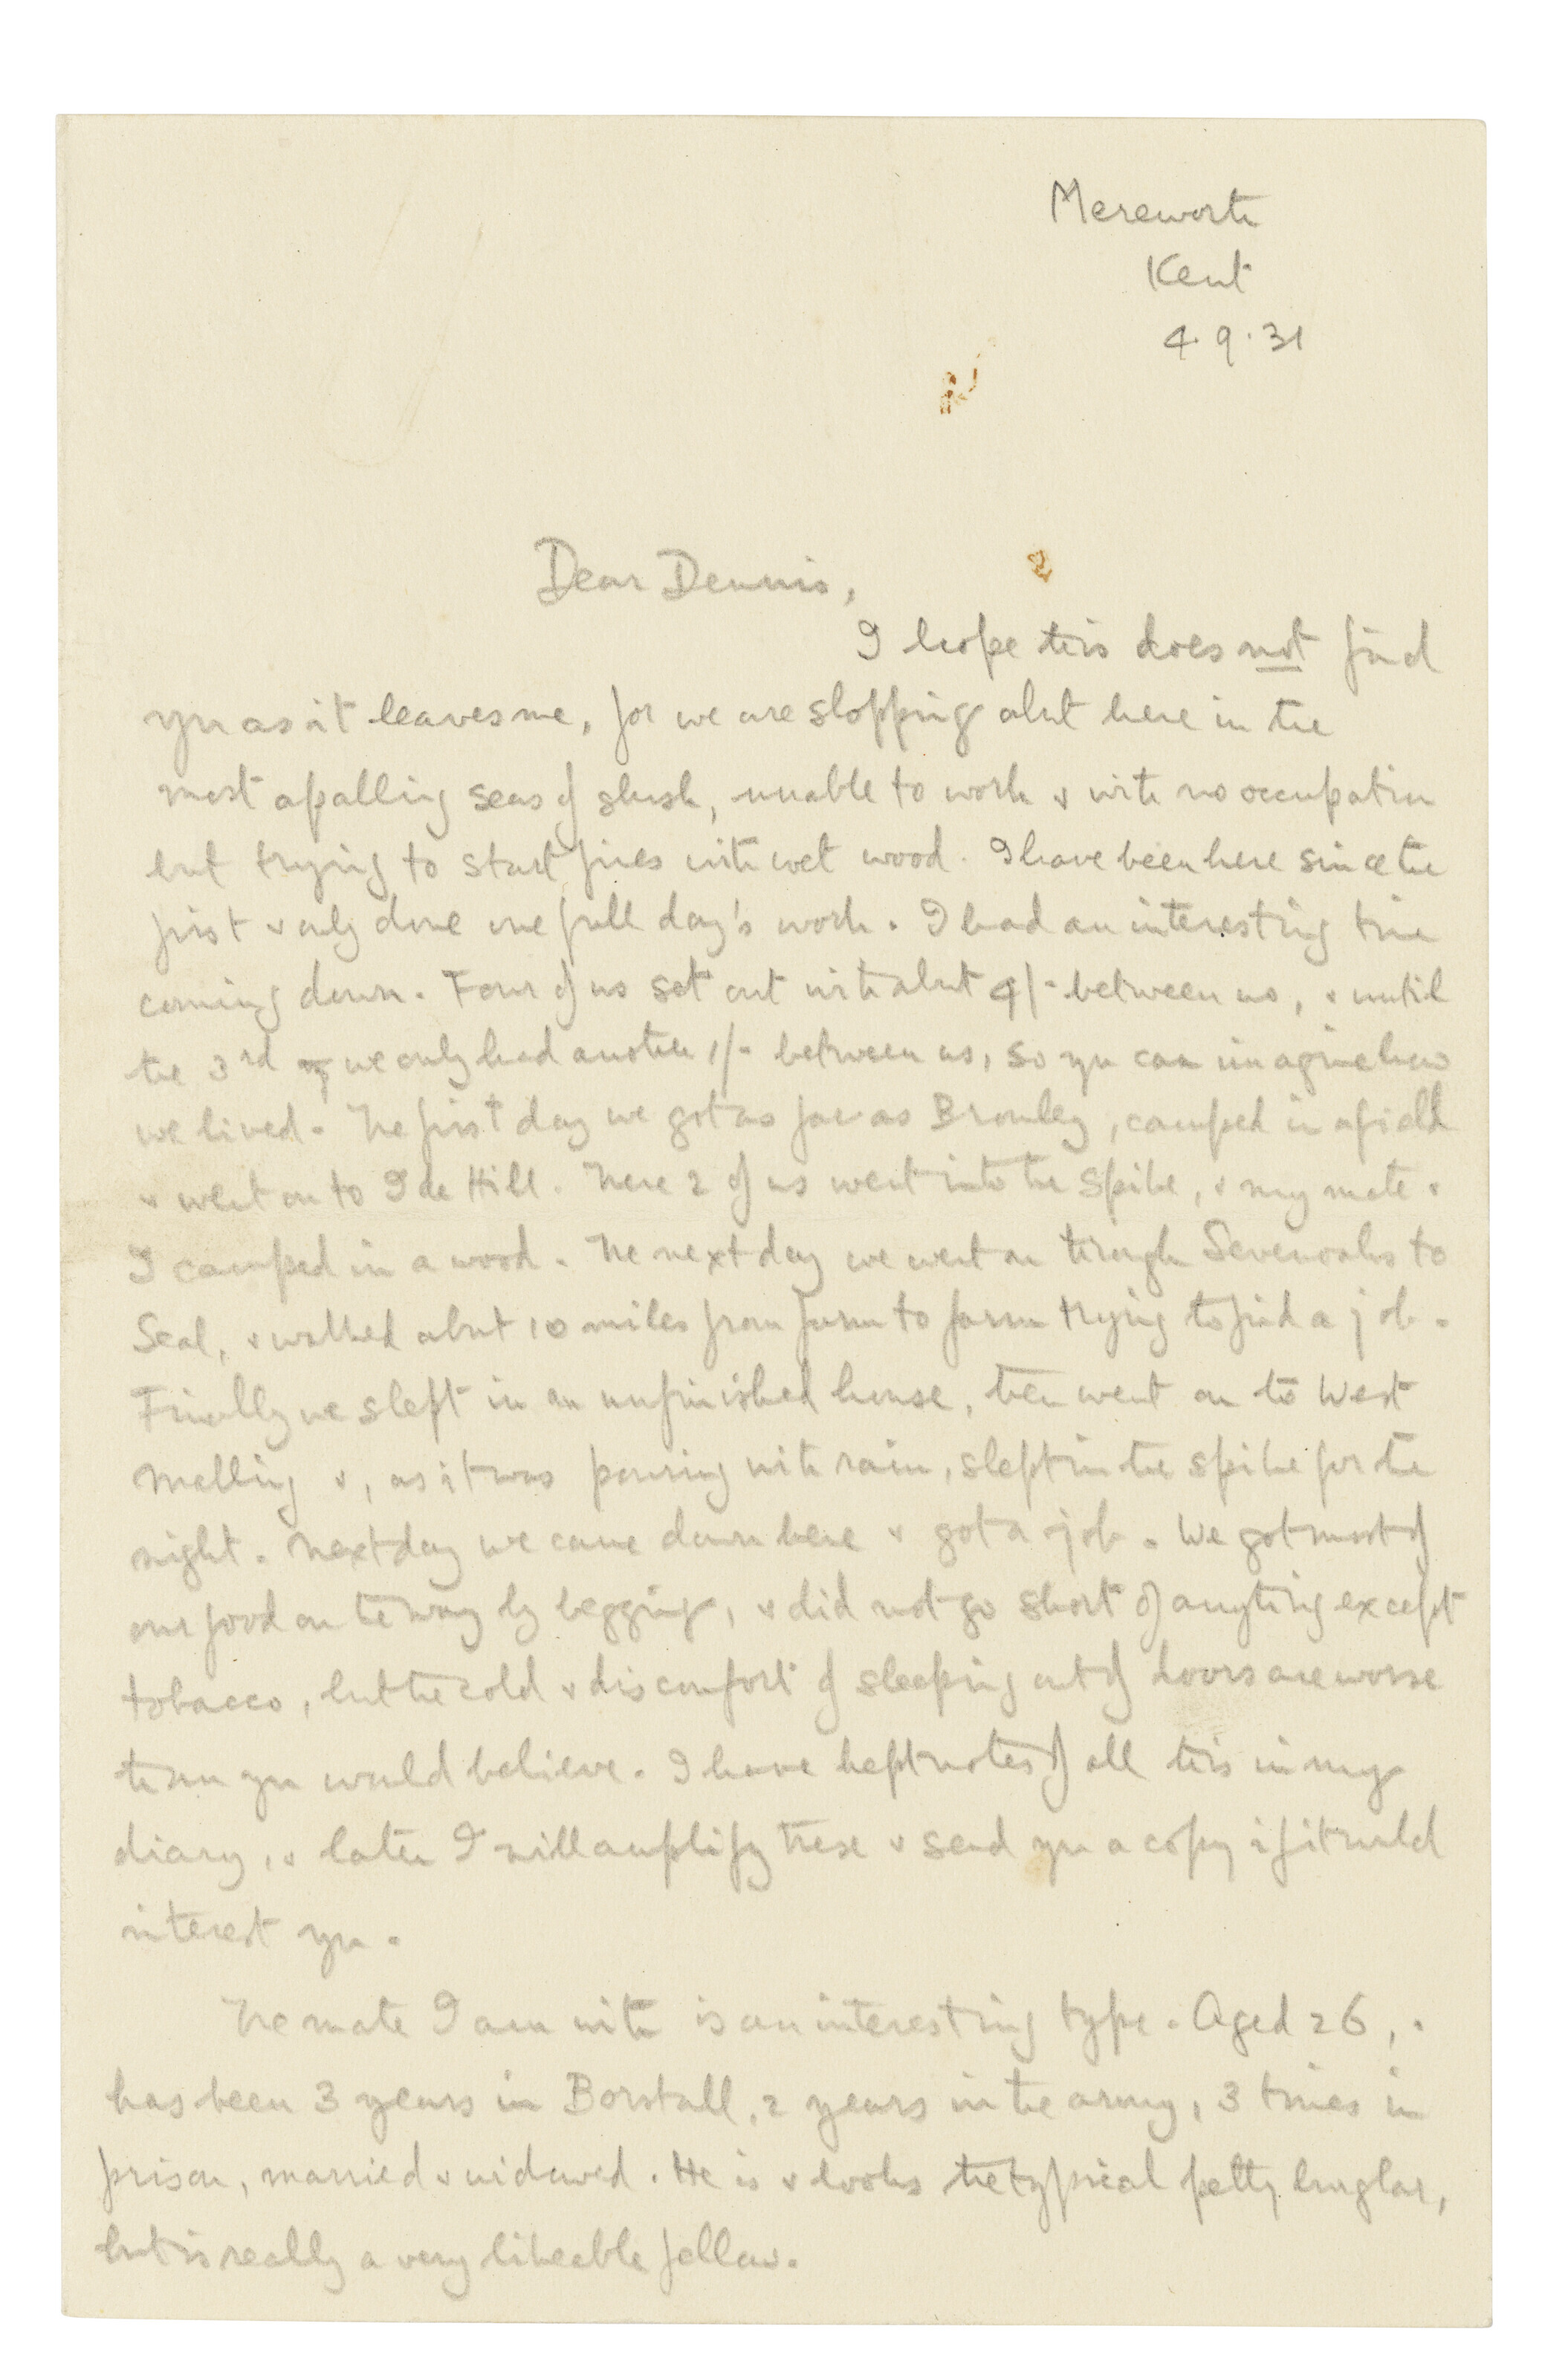 Mereworth
Kent
4.9.31
Dear Dennis,
I hope this does not find
you as it leaves me, for we are slopping about here in the
most apalling seas of slush, unable to work & with no occupation
but trying to start fires with wet wood. I have been here since the
first & only done one full day's work. I had an interesting time
coming down. Four of us set out with about 4/- between us, & until
the 3rd we only had another 1/- between us, so you can imagine how
we lived. The first day we got as far as Bromley, camped in a field
& went on to Ide Hill. There 2 of us went into the spike, & my mate &
I camped in a wood. The next day we went on through Sevenoaks to
Seal, & walked about 10 miles from farm to farm trying to find a job.
Finally we slept in an unfinished house, then went on to West
Malling &, as it was pouring with rain, slept in the spike for the
night. Next day we came down here & got a job. We got most of
our food on the way by begging, & did not go short of anything except
tobacco, but the cold & discomfort of sleeping out of doors are worse
than you would believe. I have kept notes of all this in my
diary, & later I will amplify these & send you a copy if it would
interest you.
The mate I am with is an interesting type. Aged 26,
has been 3 years in Borstall, 2 years in the army, 3 times in
prison, married & widowed. He is & looks the typical petty burglar,
but is really a very likeable fellow.